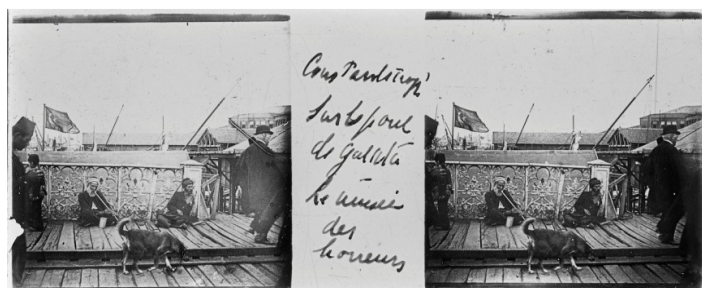 Constantinopl
Sur le pont
de Galata
Le musée
des
horreurs